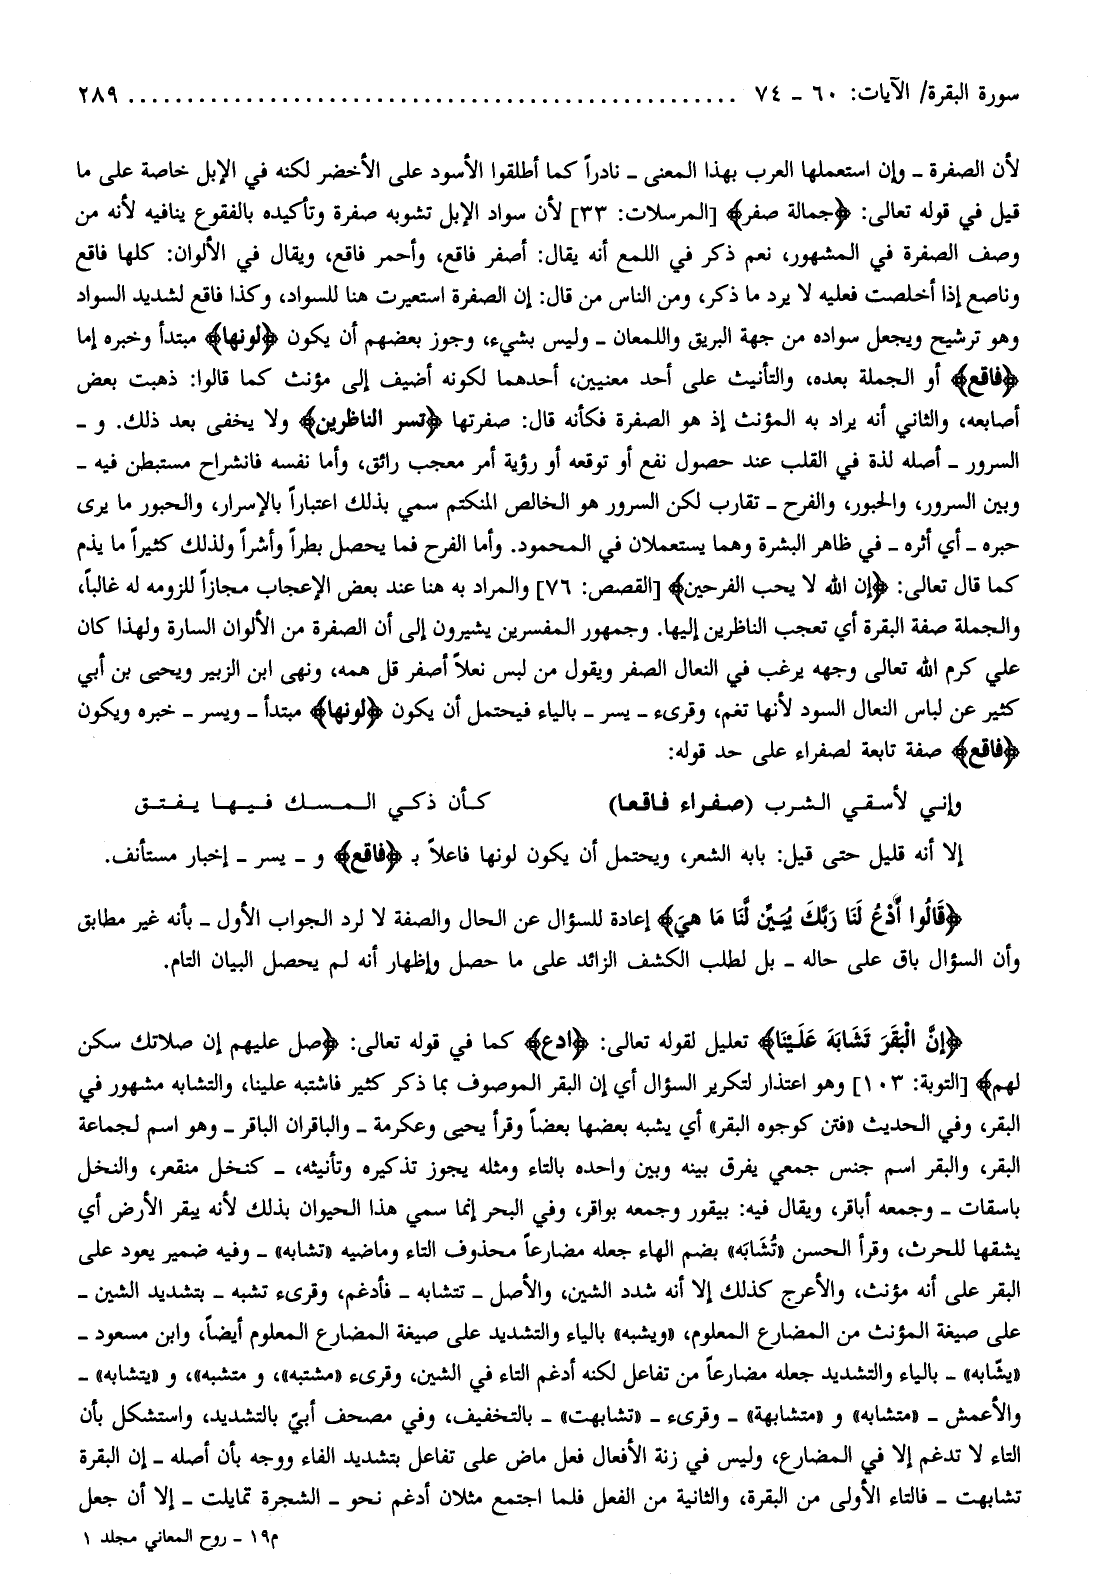 سورة البقرة/ الآيات: ٦٠ ـ ٧٤ ................................................... ٢٨٩
لأن الصفرة ـ وإن استعملها العرب بهذا المعنى ـ نادراً كما أطلقوا الأسود على الأخضر لكنه في الإبل خاصة على ما
قيل في قوله تعالى: ﴿جمالة صفر﴾ [المرسلات: ٣٣] لأن سواد الإبل تشوبه صفرة وتأكيده بالفقوع ينافيه لأنه من
وصف الصفرة في المشهور، نعم ذكر في اللمع أنه يقال: أصفر فاقع، وأحمر فاقع، ويقال في الألوان: كلها فاقع
وناصع إذا أخلصت فعليه لا يرد ما ذكر، ومن الناس من قال: إن الصفرة استعيرت هنا للسواد، وكذا فاقع لشديد السواد
وهو ترشيح ويجعل سواده من جهة البريق واللمعان ـ وليس بشيء، وجوز بعضهم أن يكون ﴿لونها﴾ مبتدأ وخبره إما
﴿فاقع﴾ أو الجملة بعده، والتأنيث على أحد معنيين، أحدهما لكونه أضيف إلى مؤنث كما قالوا: ذهبت بعض
أصابعه، والثاني أنه يراد به المؤنث إذ هو الصفرة فكأنه قال: صفرتها ﴿تسر الناظرين﴾ ولا يخفى بعد ذلك. و ـ
السرور ـ أصله لذة في القلب عند حصول نفع أو توقعه أو رؤية أمر معجب رائق، وأما نفسه فانشراح مستبطن فيه ـ
وبين السرور، والحبور، والفرح ـ تقارب لكن السرور هو الخالص المنكتم سمي بذلك اعتباراً بالإسرار، والحبور ما يرى
حبره ـ أي أثره ـ في ظاهر البشرة وهما يستعملان في المحمود. وأما الفرح فما يحصل بطراً وأشراً ولذلك كثيراً ما يذم
كما قال تعالى: ﴿إن الله لا يحب الفرحين﴾ [القصص: ٧٦] والمراد به هنا عند بعض الإعجاب مجازاً للزومه له غالباً،
والجملة صفة البقرة أي تعجب الناظرين إليها. وجمهور المفسرين يشيرون إلى أن الصفرة من الألوان السارة ولهذا كان
علي كرم الله تعالى وجهه يرغب في النعال الصفر ويقول من لبس نعلاً أصفر قل همه، ونهى ابن الزبير ويحيى بن أبي
كثير عن لباس النعال السود لأنها تغم، وقرىء ـ يسر ـ بالياء فيحتمل أن يكون ﴿لونها﴾ مبتدأ ـ ويسر ـ خبره ويكون
﴿فاقع﴾ صفة تابعة لصفراء على حد قوله:
وإني لأسقي الشرب (صفراء فاقعا) كأن ذكي المسك فيها يفتق
إلا أنه قليل حتى قيل: بابه الشعر، ويحتمل أن يكون لونها فاعلاً بـ ﴿فاقع﴾ و ـ يسر ـ إخبار مستأنف.
﴿قَالُوا ٱدْعُ لَنَا رَبَّكَ يُبَيِّن لَّنَا مَا هِيَ﴾ إعادة للسؤال عن الحال والصفة لا لرد الجواب الأول ـ بأنه غير مطابق
وأن السؤال باق على حاله ـ بل لطلب الكشف الزائد على ما حصل وإظهار أنه لم يحصل البيان التام.
﴿إِنَّ الْبَقَرَ تَشَابَهَ عَلَيْنَا﴾ تعليل لقوله تعالى: ﴿ادع﴾ كما في قوله تعالى: ﴿صل عليهم إن صلاتك سكن
لهم﴾ [التوبة: ١٠٣] وهو اعتذار لتكرير السؤال أي إن البقر الموصوف بما ذكر كثير فاشتبه علينا، والتشابه مشهور في
البقر، وفي الحديث «فتن كوجوه البقر» أي يشبه بعضها بعضاً وقرأ يحيى وعكرمة ـ والباقران الباقر ـ وهو اسم لجماعة
البقر، والبقر اسم جنس جمعي يفرق بينه وبين واحده بالتاء ومثله يجوز تذكيره وتأنيثه، ـ كنخل منقعر، والنخل
باسقات ـ وجمعه أباقر، ويقال فيه: بيقور وجمعه بواقر، وفي البحر إنما سمي هذا الحيوان بذلك لأنه يبقر الأرض أي
يشقها للحرث، وقرأ الحسن «تُشَابَه» بضم الهاء جعله مضارعاً محذوف التاء وماضيه «تشابه» ـ وفيه ضمير يعود على
البقر على أنه مؤنث، والأعرج كذلك إلا أنه شدد الشين، والأصل ـ تتشابه ـ فأدغم، وقرىء تشبه ـ بتشديد الشين ـ
على صيغة المؤنث من المضارع المعلوم، «ويشبه» بالياء والتشديد على صيغة المضارع المعلوم أيضاً، وابن مسعود ـ
«يشّابه» ـ بالياء والتشديد جعله مضارعاً من تفاعل لكنه أدغم التاء في الشين، وقرىء «مشتبه»، و متشبه»، و «يتشابه» ـ
والأعمش ـ «متشابه» و «متشابهة» ـ وقرىء ـ «تشابهت» ـ بالتخفيف، وفي مصحف أبيّ بالتشديد، واستشكل بأن
التاء لا تدغم إلا في المضارع، وليس في زنة الأفعال فعل ماض على تفاعل بتشديد الفاء ووجه بأن أصله ـ إن البقرة
تشابهت ـ فالتاء الأولى من البقرة، والثانية من الفعل فلما اجتمع مثلان أدغم نحو ـ الشجرة تمايلت ـ إلا أن جعل
م١٩ ـ روح المعاني مجلد ١